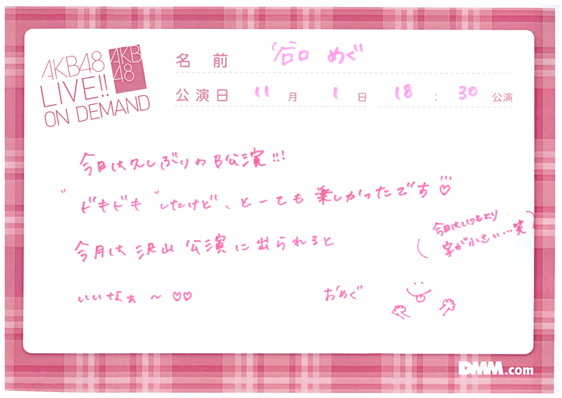 AKB48
LIVE!!
ON DEMAND
AKB
48
名前 谷口 めぐ
公演日 11月 1日 18:30 公演
今日は久しぶりのB公演!!!
"ドキドキ"したけど、とーても楽しかったです♡
今月は沢山公演に出られると
いいなぁ〜♡♡
おめぐ
(今日はいつもより
字が小さい…笑)
DMM.com